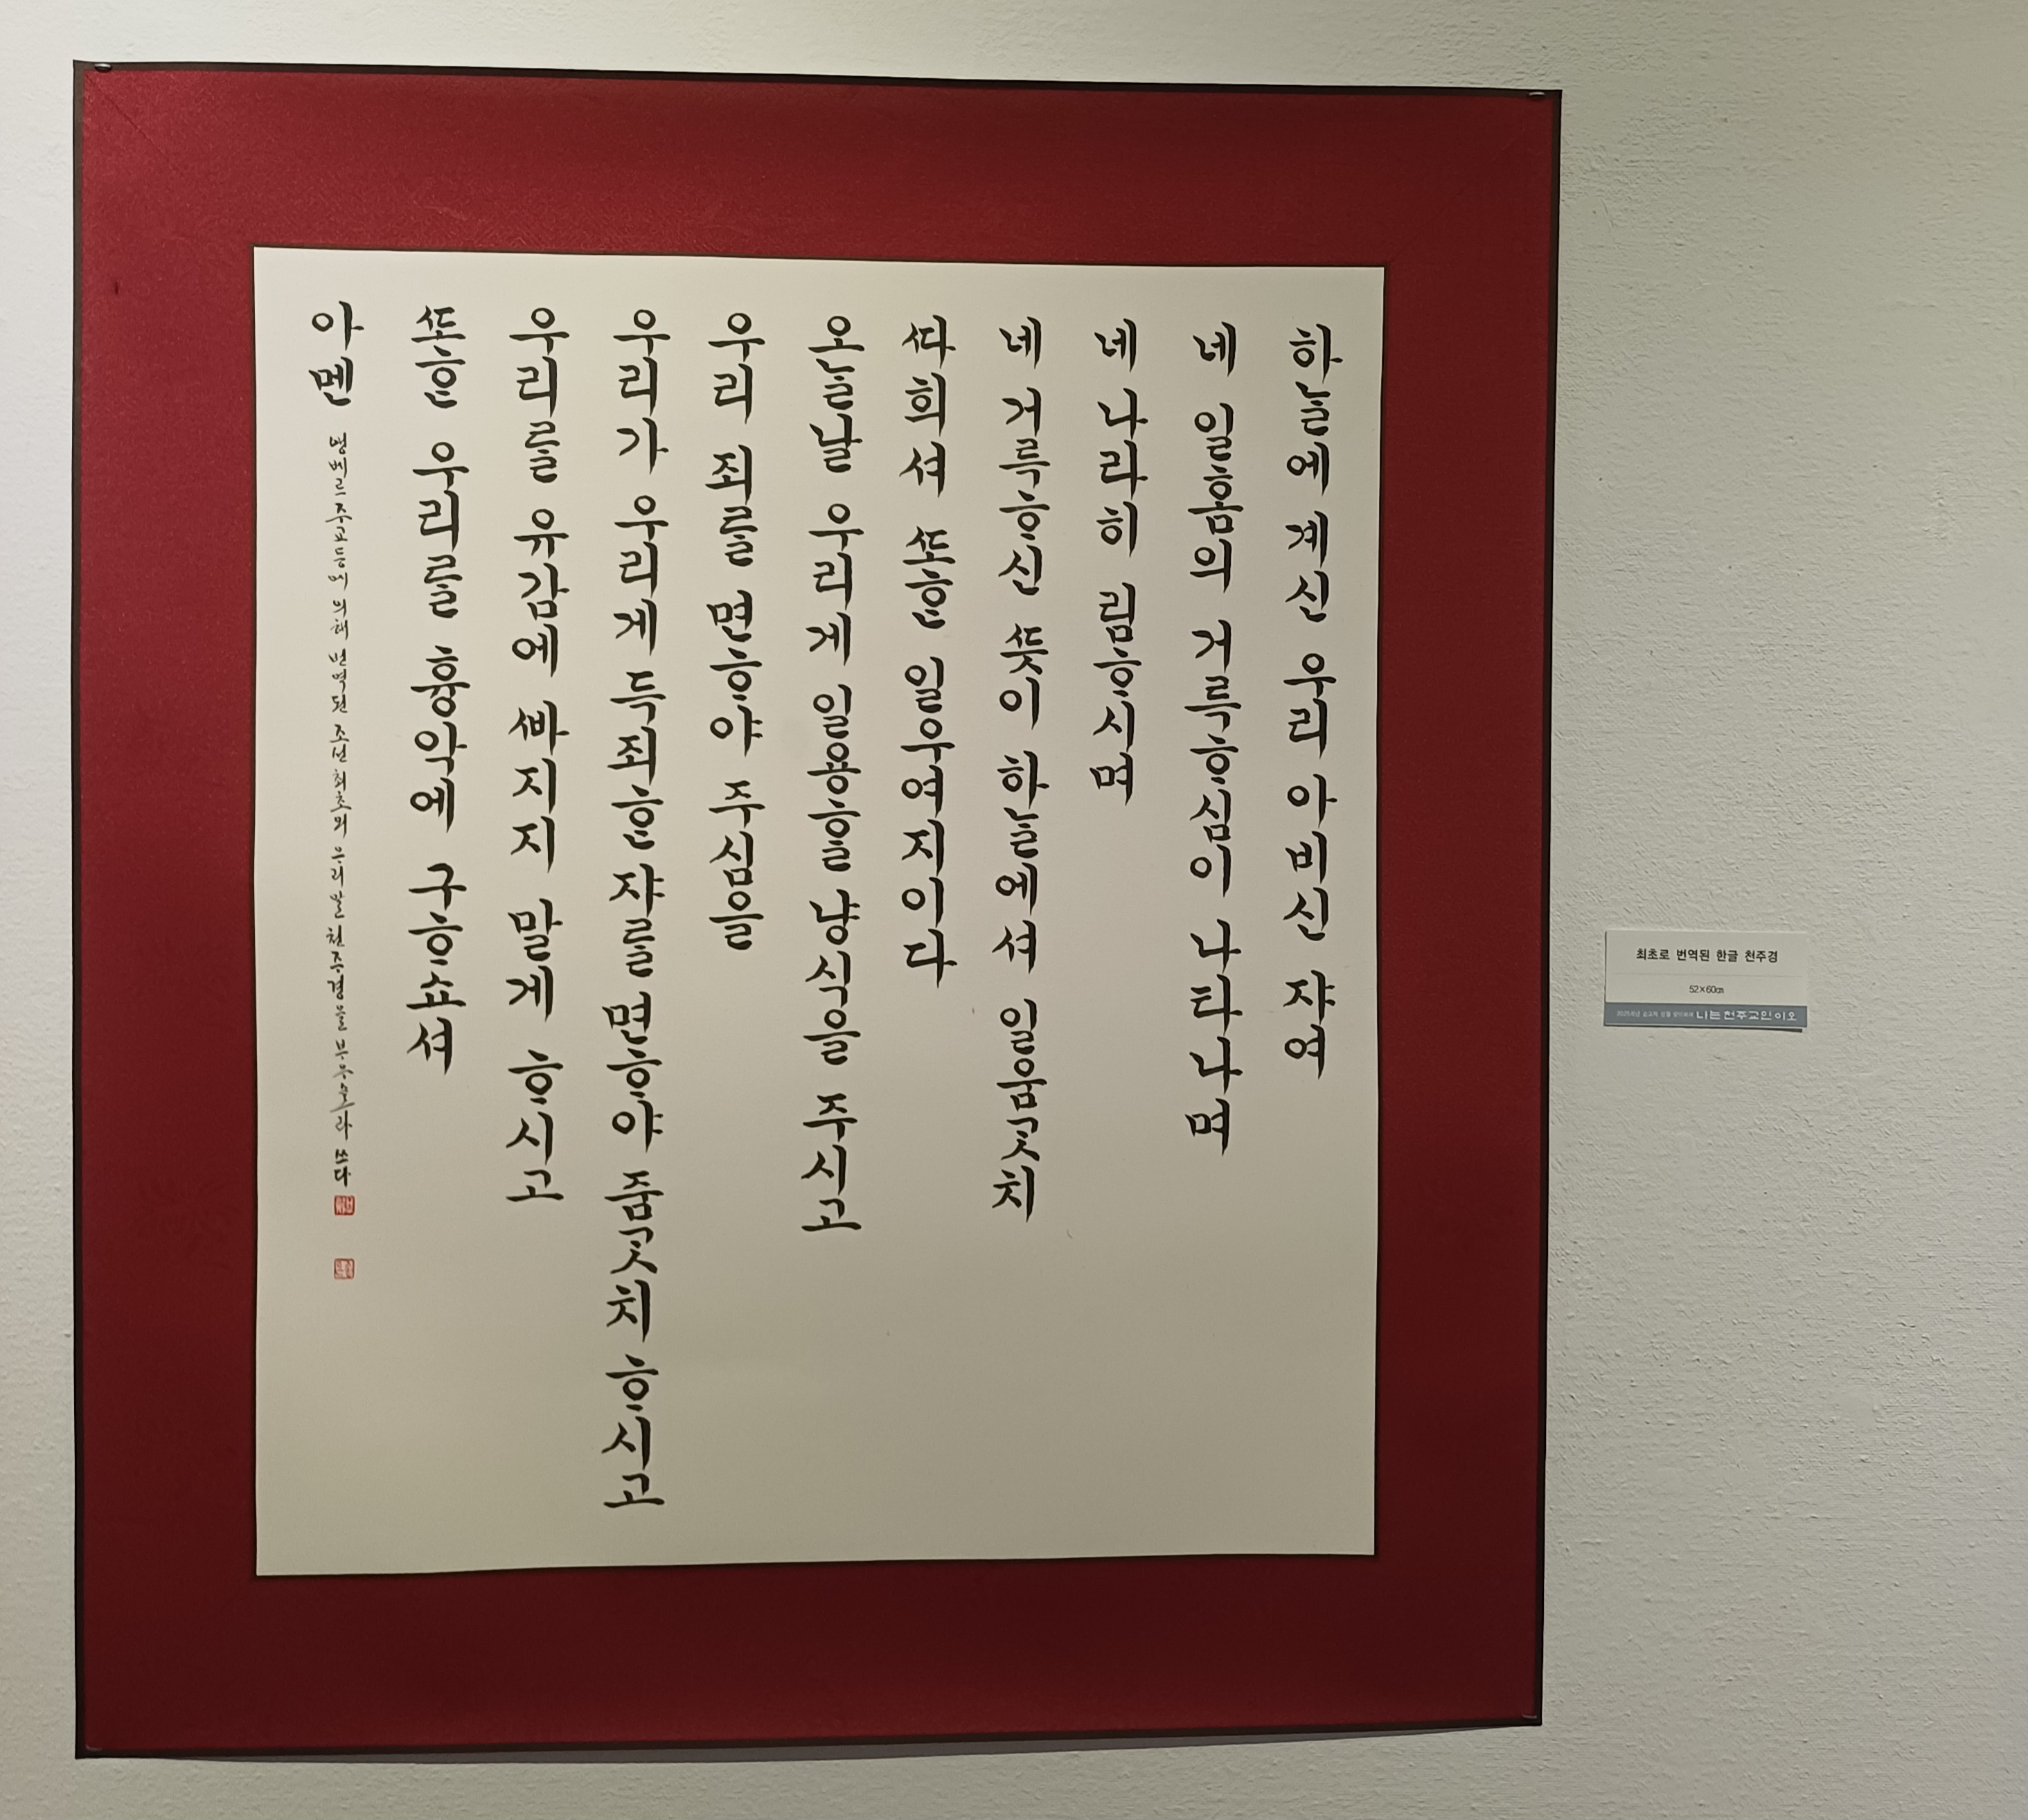 하ᄂᆞᆯ에 계신 우리 아비신 쟈여
네 일홈의 거륵ᄒᆞ심이 나타나며
네 나라히 림ᄒᆞ시며
네 거륵ᄒᆞ신 ᄯᅳᆺ이 하ᄂᆞᆯ에셔 일움ᄀᆞᆺ치
ᄯᅡ희셔 ᄯᅩᄒᆞᆫ 일우여지이다
오ᄂᆞᆯ날 우리게 일용ᄒᆞᆯ 냥식을 주시고
우리 죄를 면ᄒᆞ야 주심을
우리가 우리게 득죄ᄒᆞᆫ 쟈를 면ᄒᆞ야 줌ᄀᆞᆺ치 ᄒᆞ시고
우리를 유감에 ᄲᅡ지지 말게 ᄒᆞ시고
ᄯᅩᄒᆞᆫ 우리를 흉악에 구ᄒᆞ쇼셔
아멘
앵베르주교등에 의해 번역된 조선최초의 우리말 천주경을 부우술라 쓰다
최초로 번역된 한글 천주경
52×60㎝
나는 천주교인이오